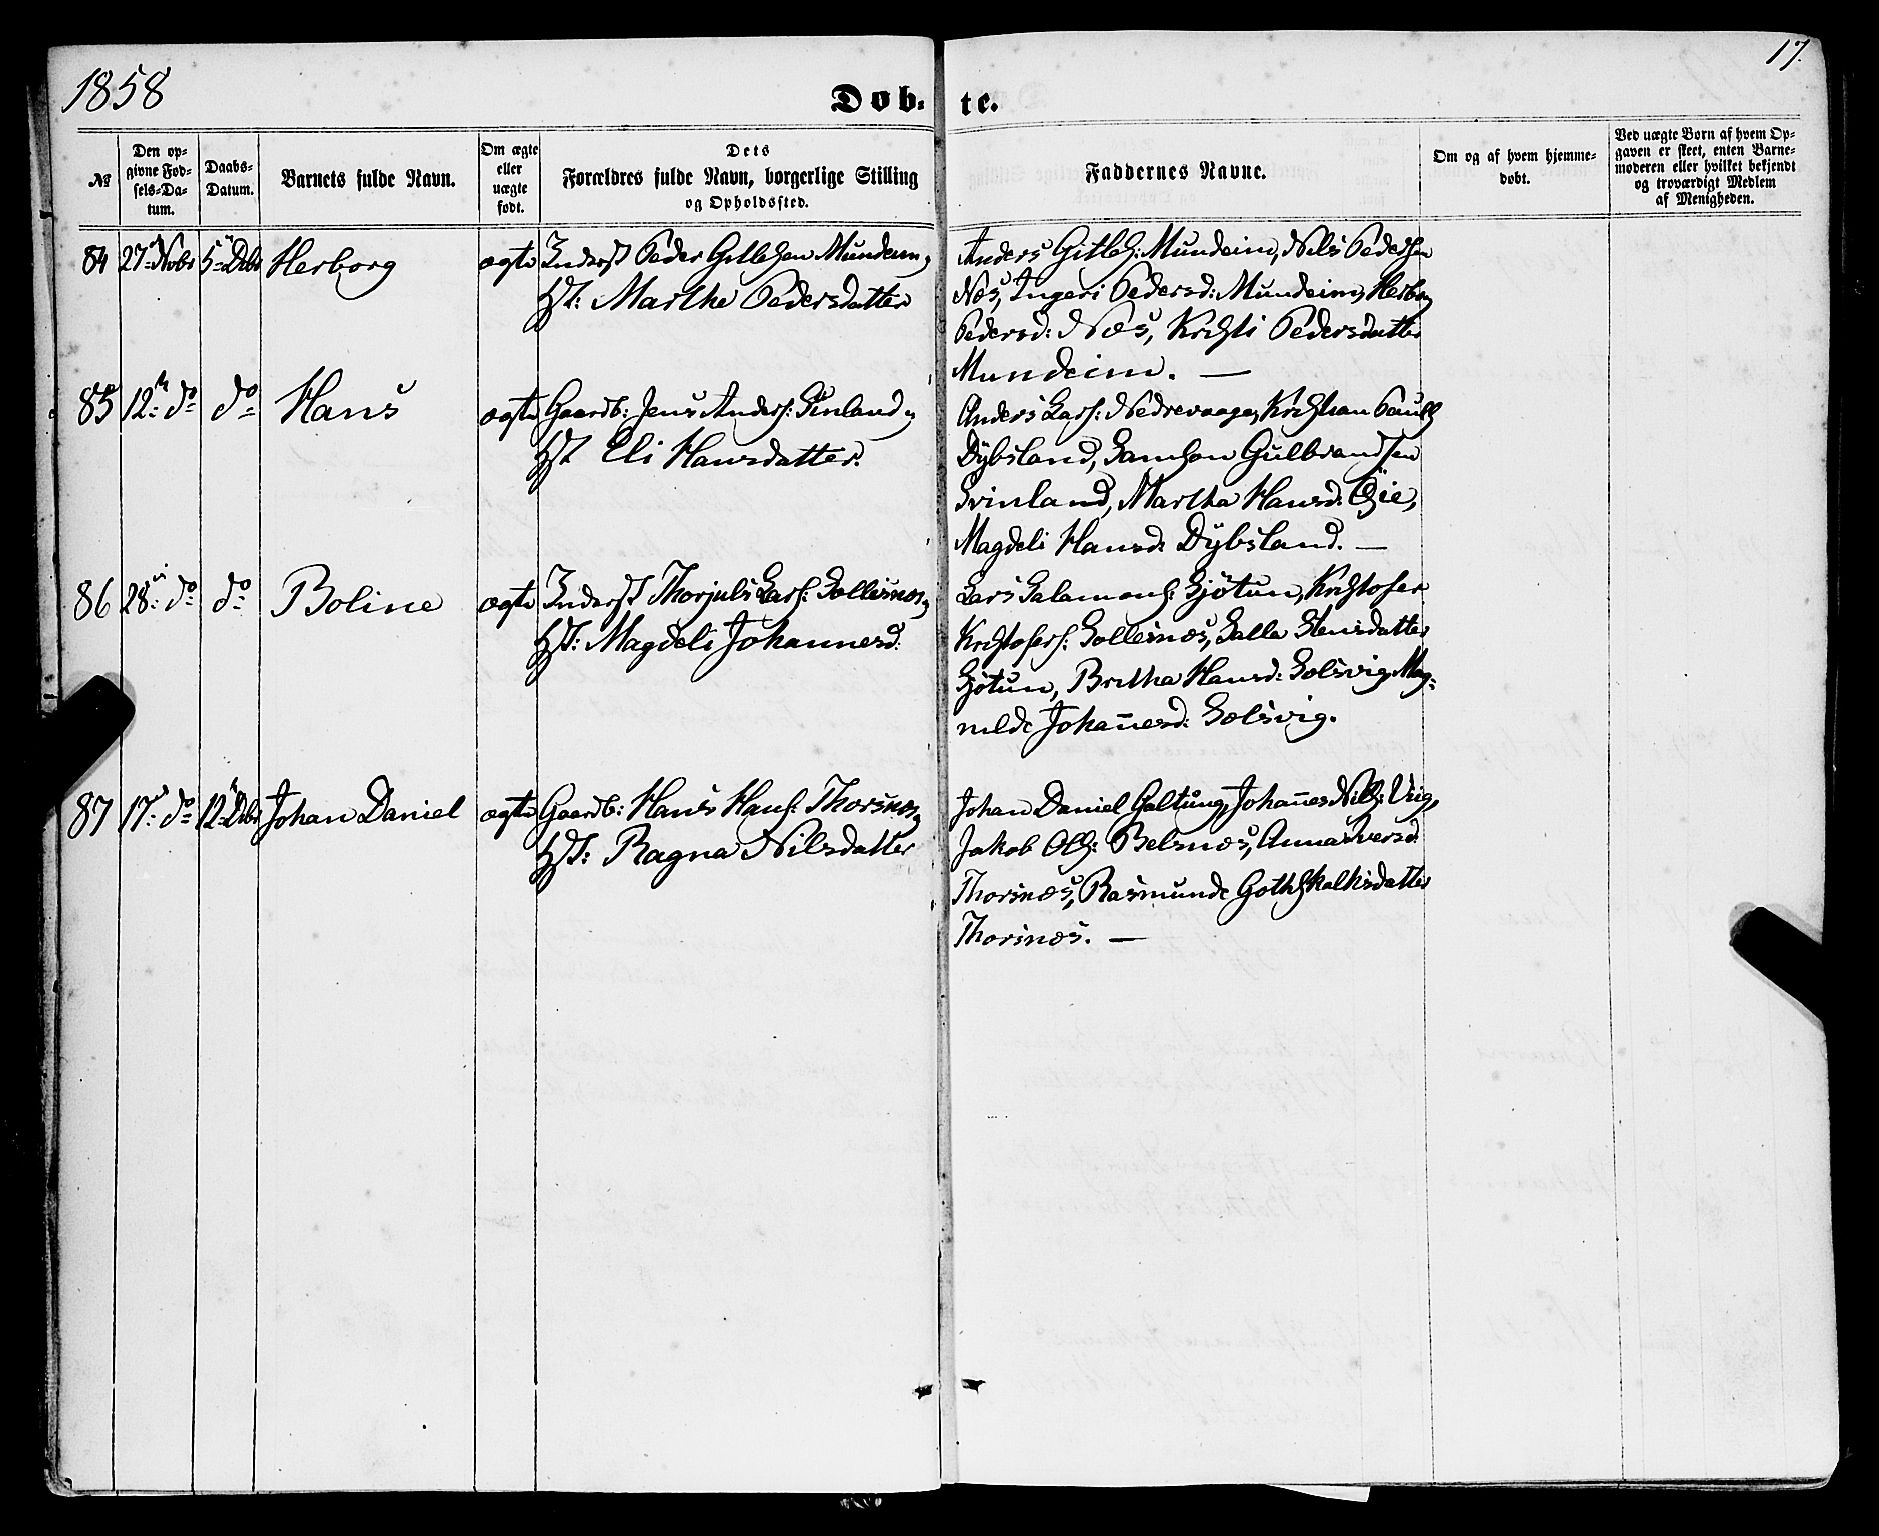 1858
17.
Døb-
te.
№
Den op-
givne Fød-
sels-Da-
tum.
Daabs-
Datum.
Barnets fulde Navn.
Om ægte
eller
uægte
født.
Dets
Forældres fulde Navn, borgerlige Stilling
og Opholdssted.
Faddernes Navne.
Om og af hvem hjemme-
døbt.
Ved uægte Børn af hvem Op-
gaven er skeet, enten Barne-
moderen eller hvilket bekjendt
og troværdigt Medlem
af Menigheden.
84 27 Novbr 5 Decbr Herborg ægte Inderst Peder Gitlesen Mundeim,
Hst: Marthe Pedersdatter
Anders Gitles: Mundeim, Nils Pedersen
Næs, Ingeri Pedersd: Mundeim, Herborg
Pedersd: Næs, Kristi Pedersdatter
Mundeim. —
85 12 do do Hans ægte Gaardb: Jens Anders: Sinland,
Hst Eli Hansdatter.
Anders Lars: Nedrevaage, Kristian Pauls
Dybsland, Samson Gulbrandsen
Svinland, Martha Hansd: Øie,
Magdeli Hansd: Dybsland. —
86 28 do do Boline ægte Inderst Thorjuls Lars: Sollesnæs,
Hst: Magdeli Johannesd:
Lars Salamons: Gjøtun, Kristofer
Kristofers: Sollesnæs, Salle Stensdatter
Gjøtun, Brithe Hansd: Solsvig, Mag-
nilde Johañesd: Solsvig.
87 17 do 12 Decbr Johan Daniel ægte Gaardb: Hans Hans: Thorsnæs,
Hst: Ragna Nilsdatter
Johan Daniel Galtung, Johañes Nils: Vig,
Jakob Ols: Belsnæs, Anna Iversd:
Thorsnæs, Rasmunde Gothskalksdatter
Thorsnæs. —